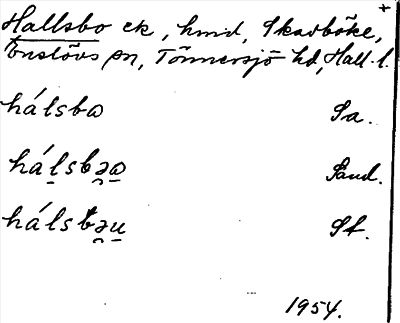 +
Hallsbo ck, hmd, Skavböke,
Enslövs sn, Tönnersjö hd, Hall. l.
hálsbɷ Sa.
hál̠sbə̯ɷ̠ Sand.
hálsbə̯u̠ St.
1954.